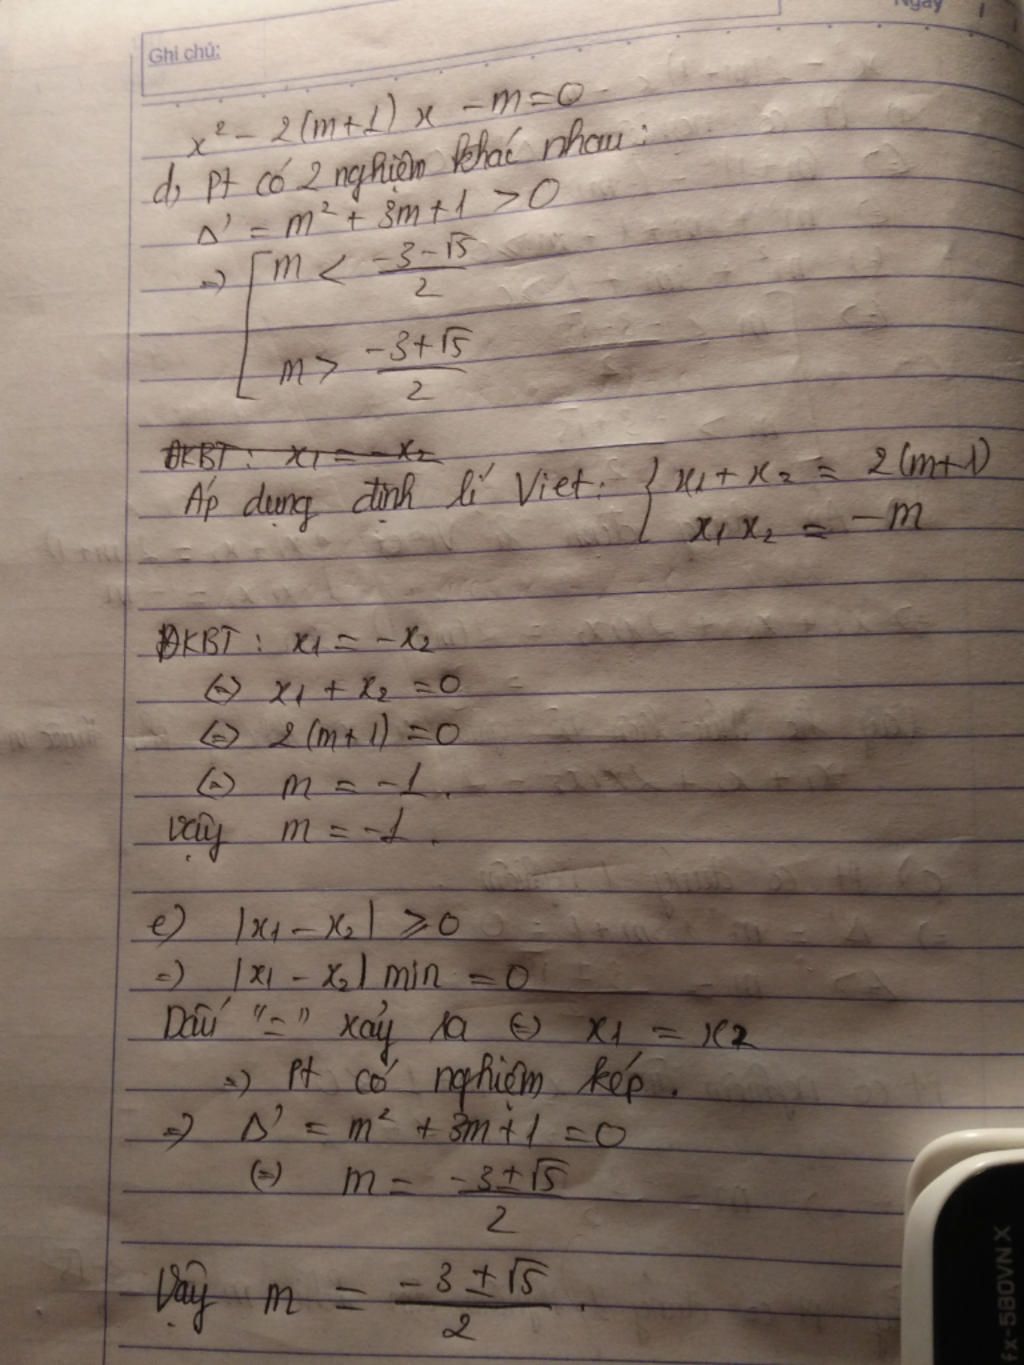 Ngày
Ghi chú:
x² - 2(m+1)x - m = 0
d, Pt có 2 nghiệm khác nhau:
Δ' = m² + 3m + 1 > 0
=> [ m < (-3-√5)/2
m > (-3+√5)/2
ĐKBT: x₁ = -x₂
Áp dụng định lí Viet: { x₁ + x₂ = 2(m+1)
x₁x₂ = -m
ĐKBT: x₁ = -x₂
(=) x₁ + x₂ = 0
(=) 2(m+1) = 0
(=) m = -1.
Vậy m = -1.
e) |x₁ - x₂| ≥ 0
=) |x₁ - x₂| min = 0
Dấu "=" xảy ra (=) x₁ = x₂
=) Pt có nghiệm kép.
=) Δ' = m² + 3m + 1 = 0
(=) m = (-3±√5)/2
Vậy m = (-3±√5)/2.
fx-580VN X